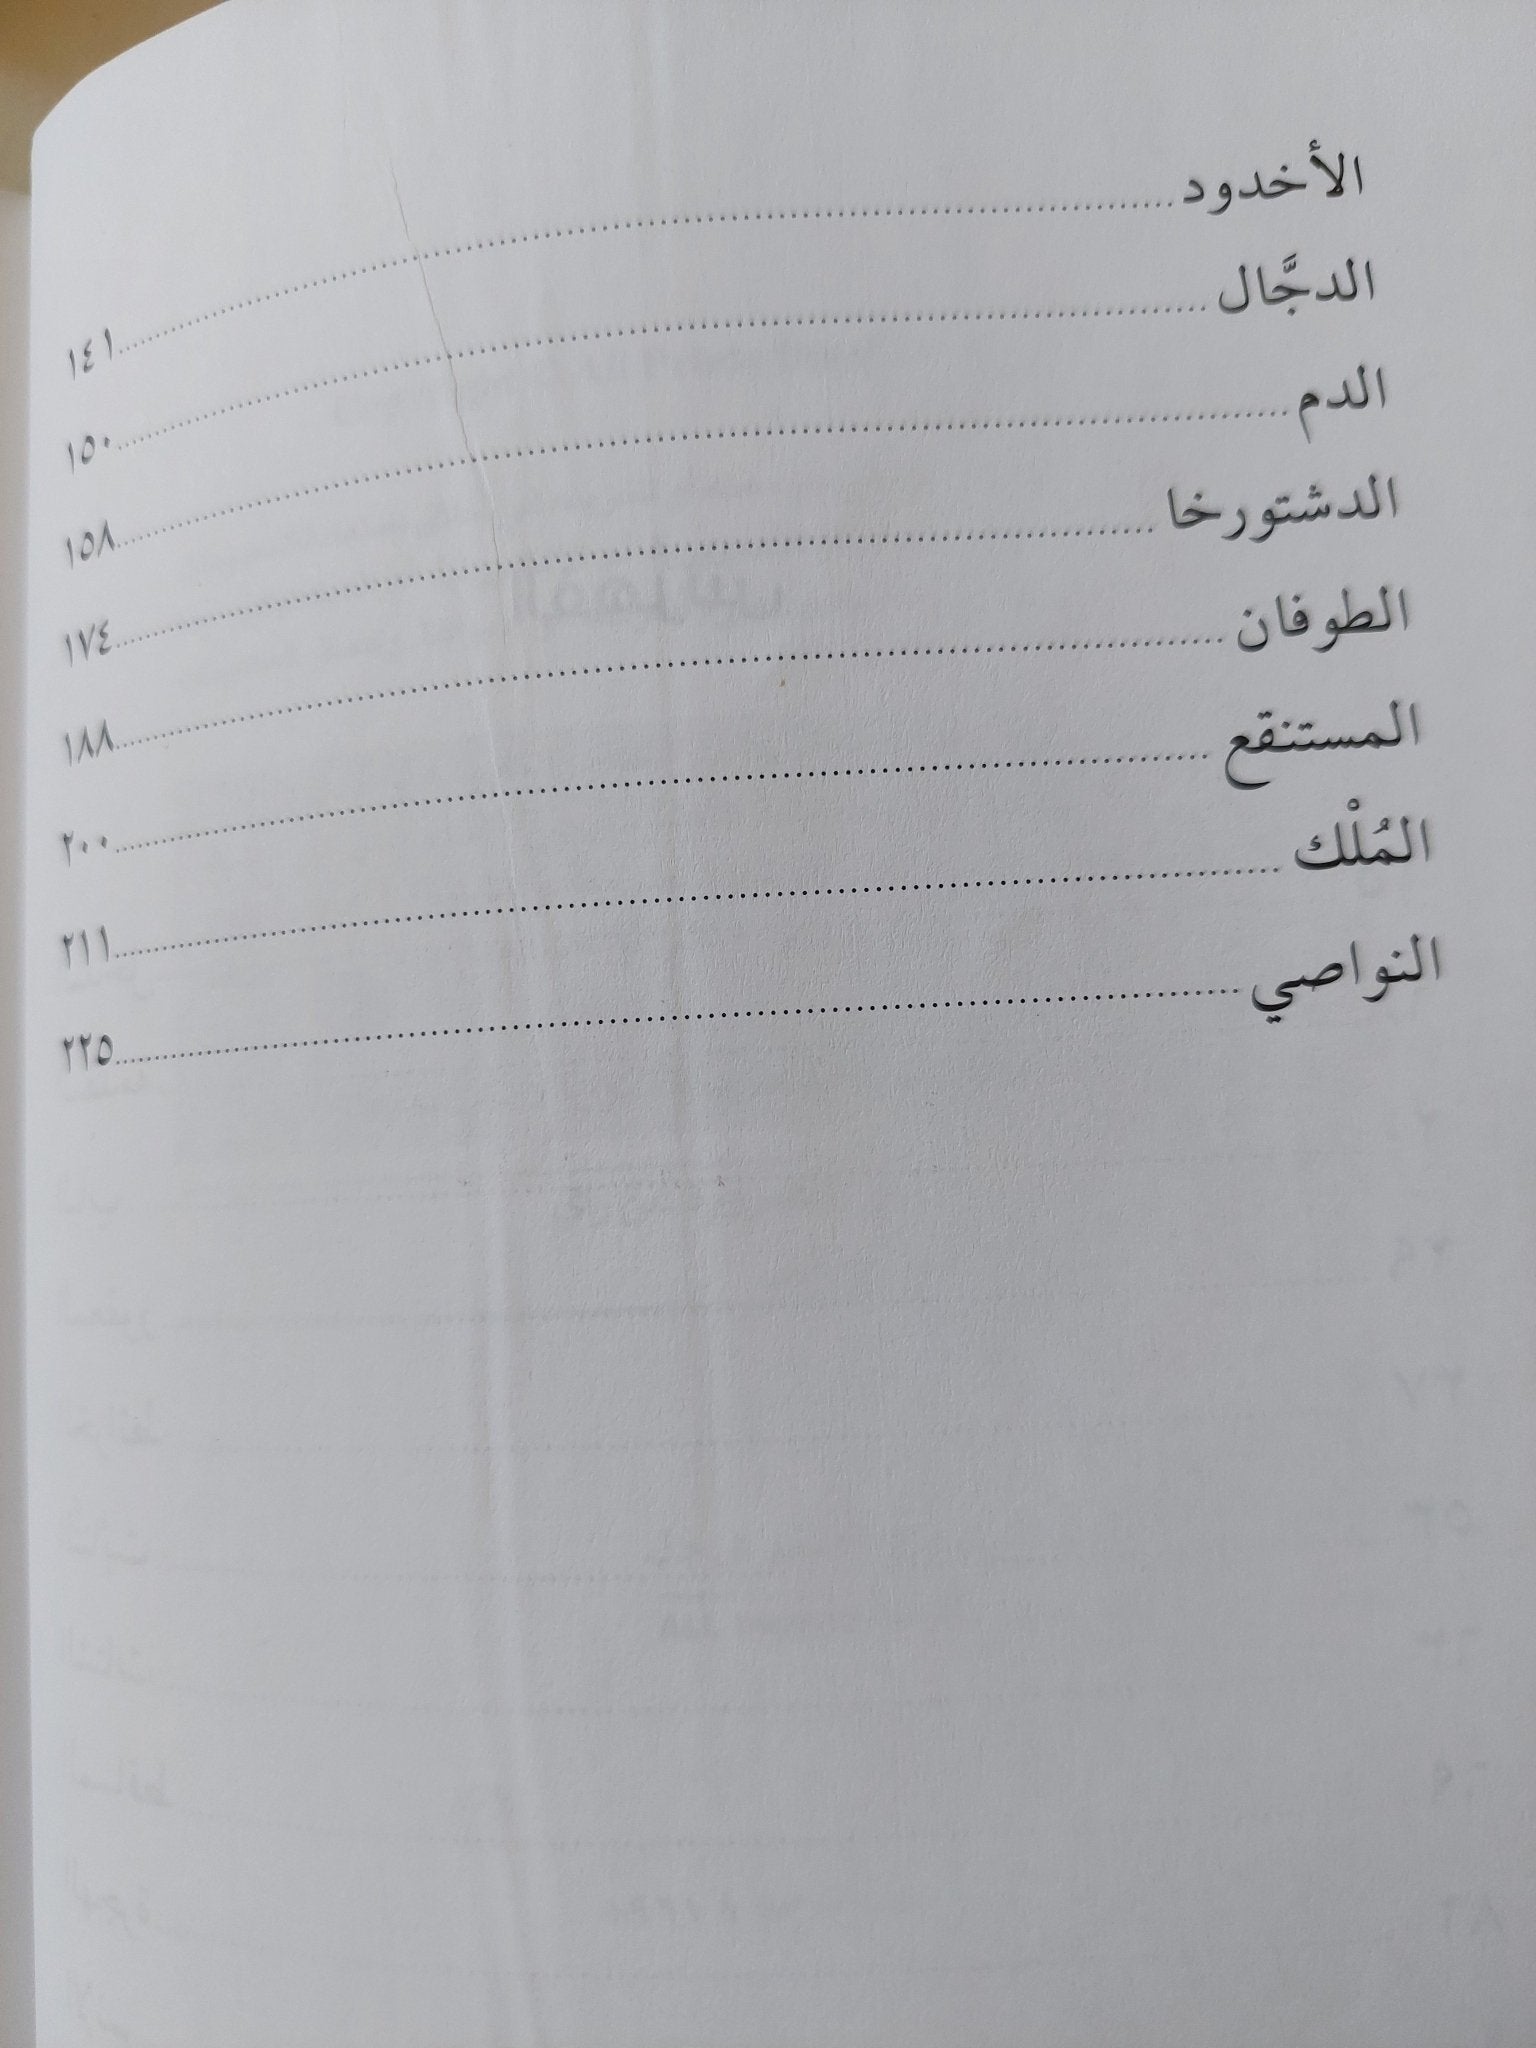 الأخدود ........ ١٤١
الدجَّال ........ ١٥٠
الدم ........ ١٥٨
الدشتورخا ........ ١٧٤
الطوفان ........ ١٨٨
المستنقع ........ ٢٠٠
المُلْك ........ ٢١١
النواصي ........ ٢٢٥